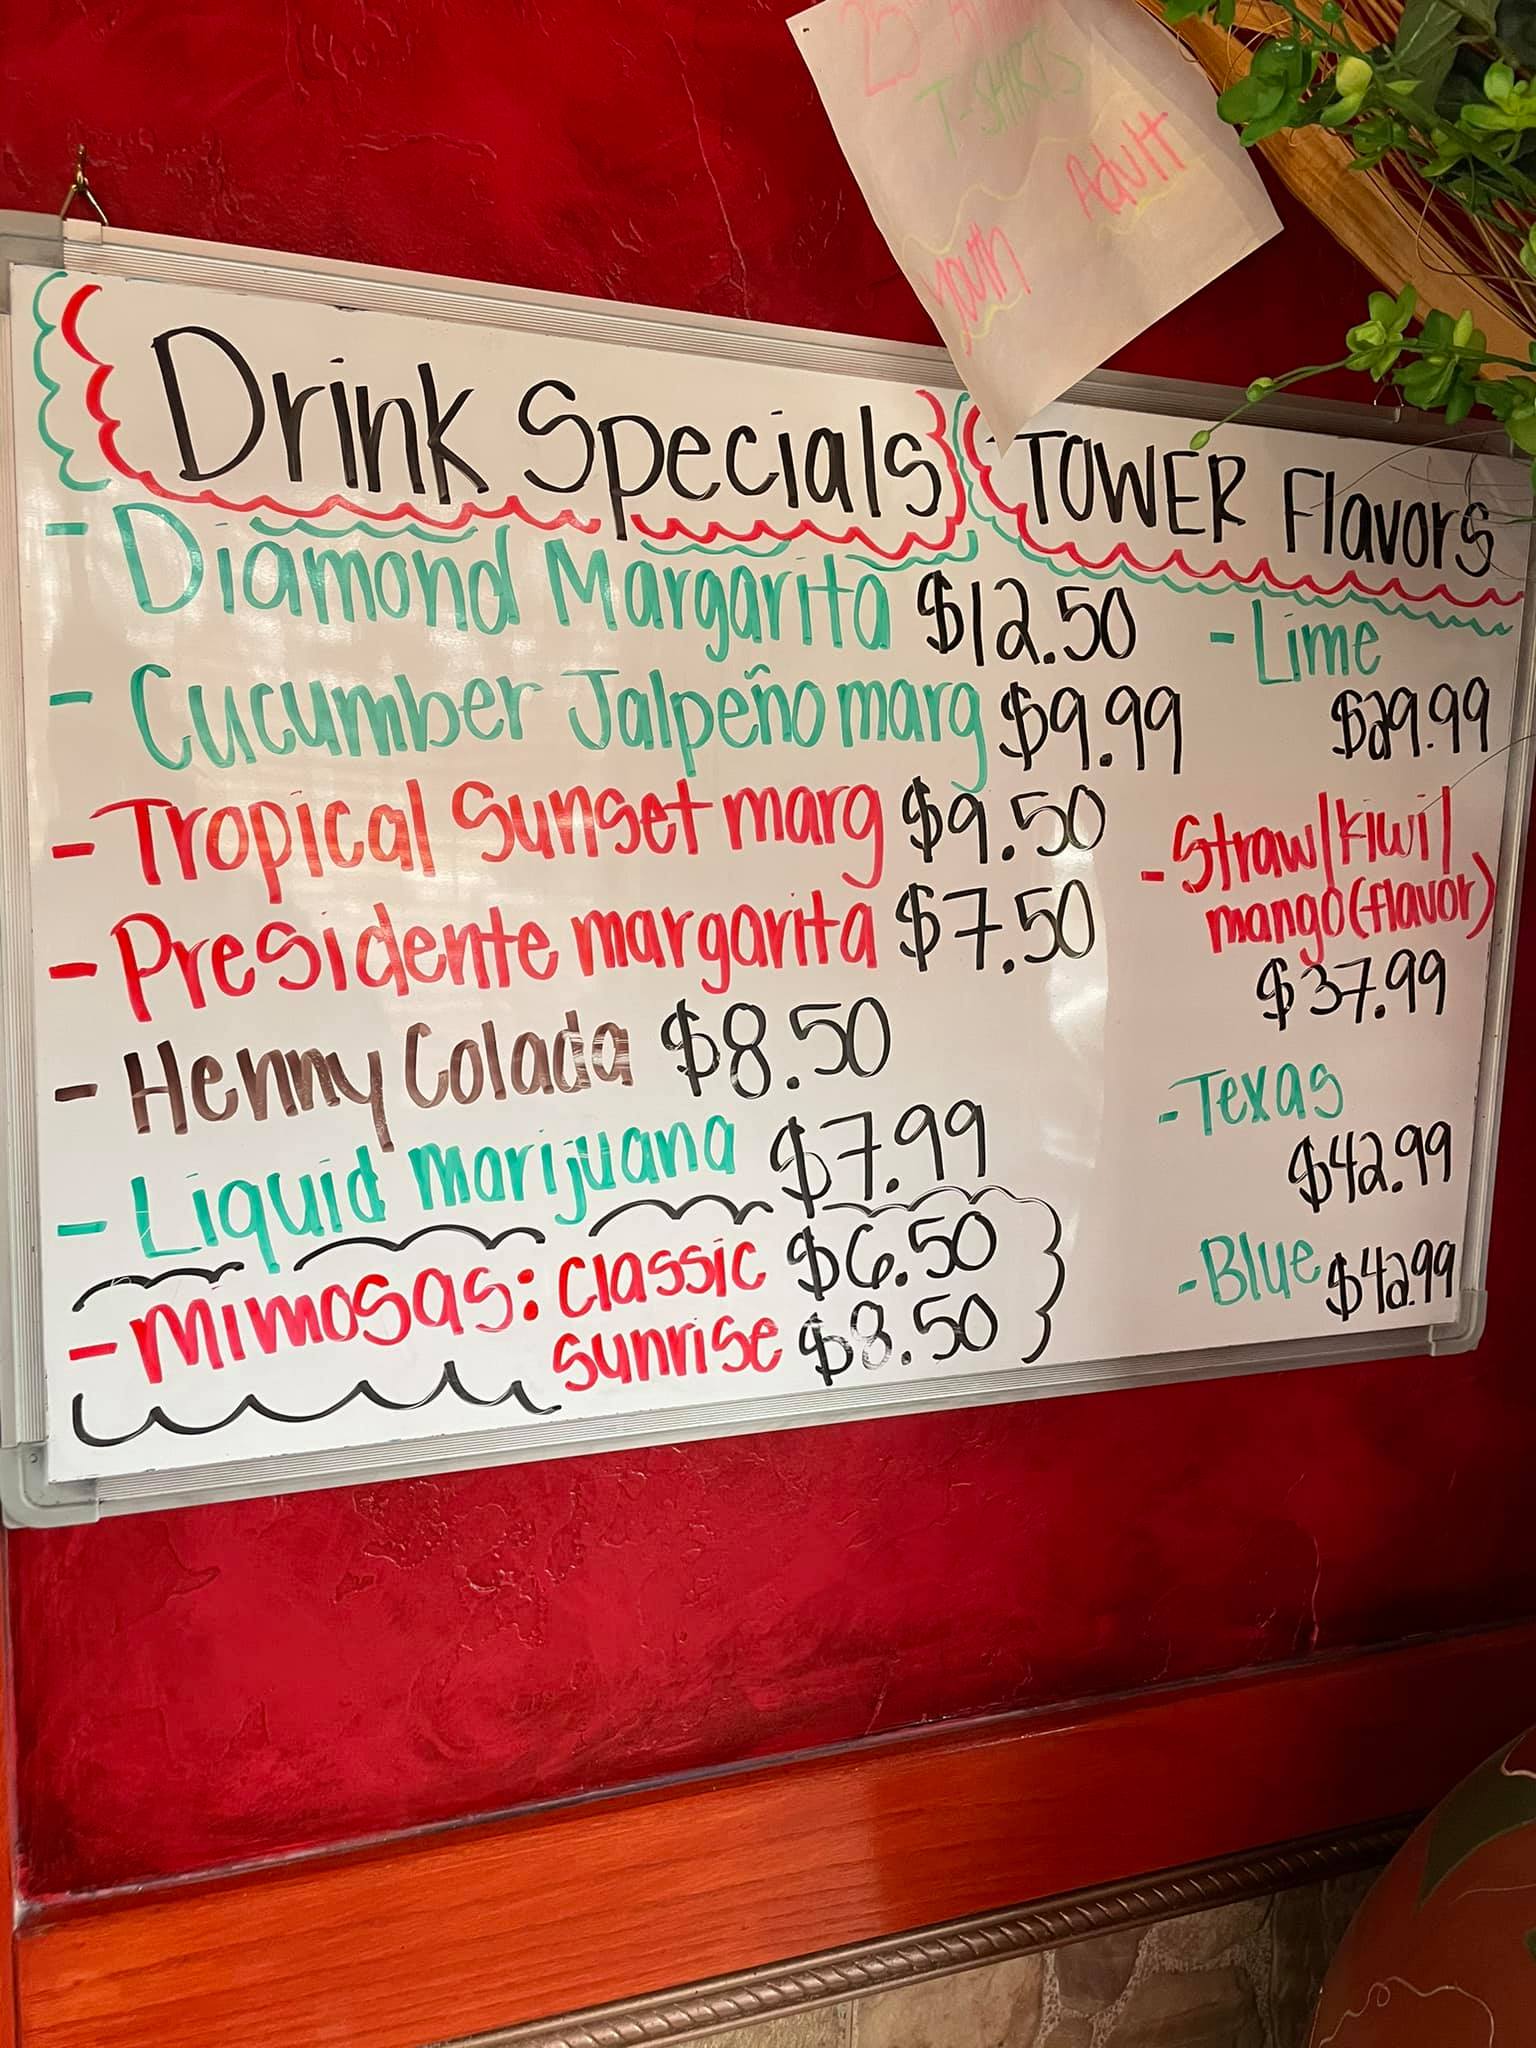 25
T-SHIRTS
Adult
Youth
Drink Specials
- Diamond Margarita $12.50
- Cucumber Jalpeño marg $9.99
- Tropical Sunset marg $9.50
- Presidente margarita $7.50
- Henny Colada $8.50
- Liquid marijuana $7.99
- Mimosas: Classic $6.50
Sunrise $8.50
TOWER Flavors
- Lime
$29.99
- Straw/kiwi/
mango(flavor)
$37.99
- Texas
$42.99
- Blue $42.99